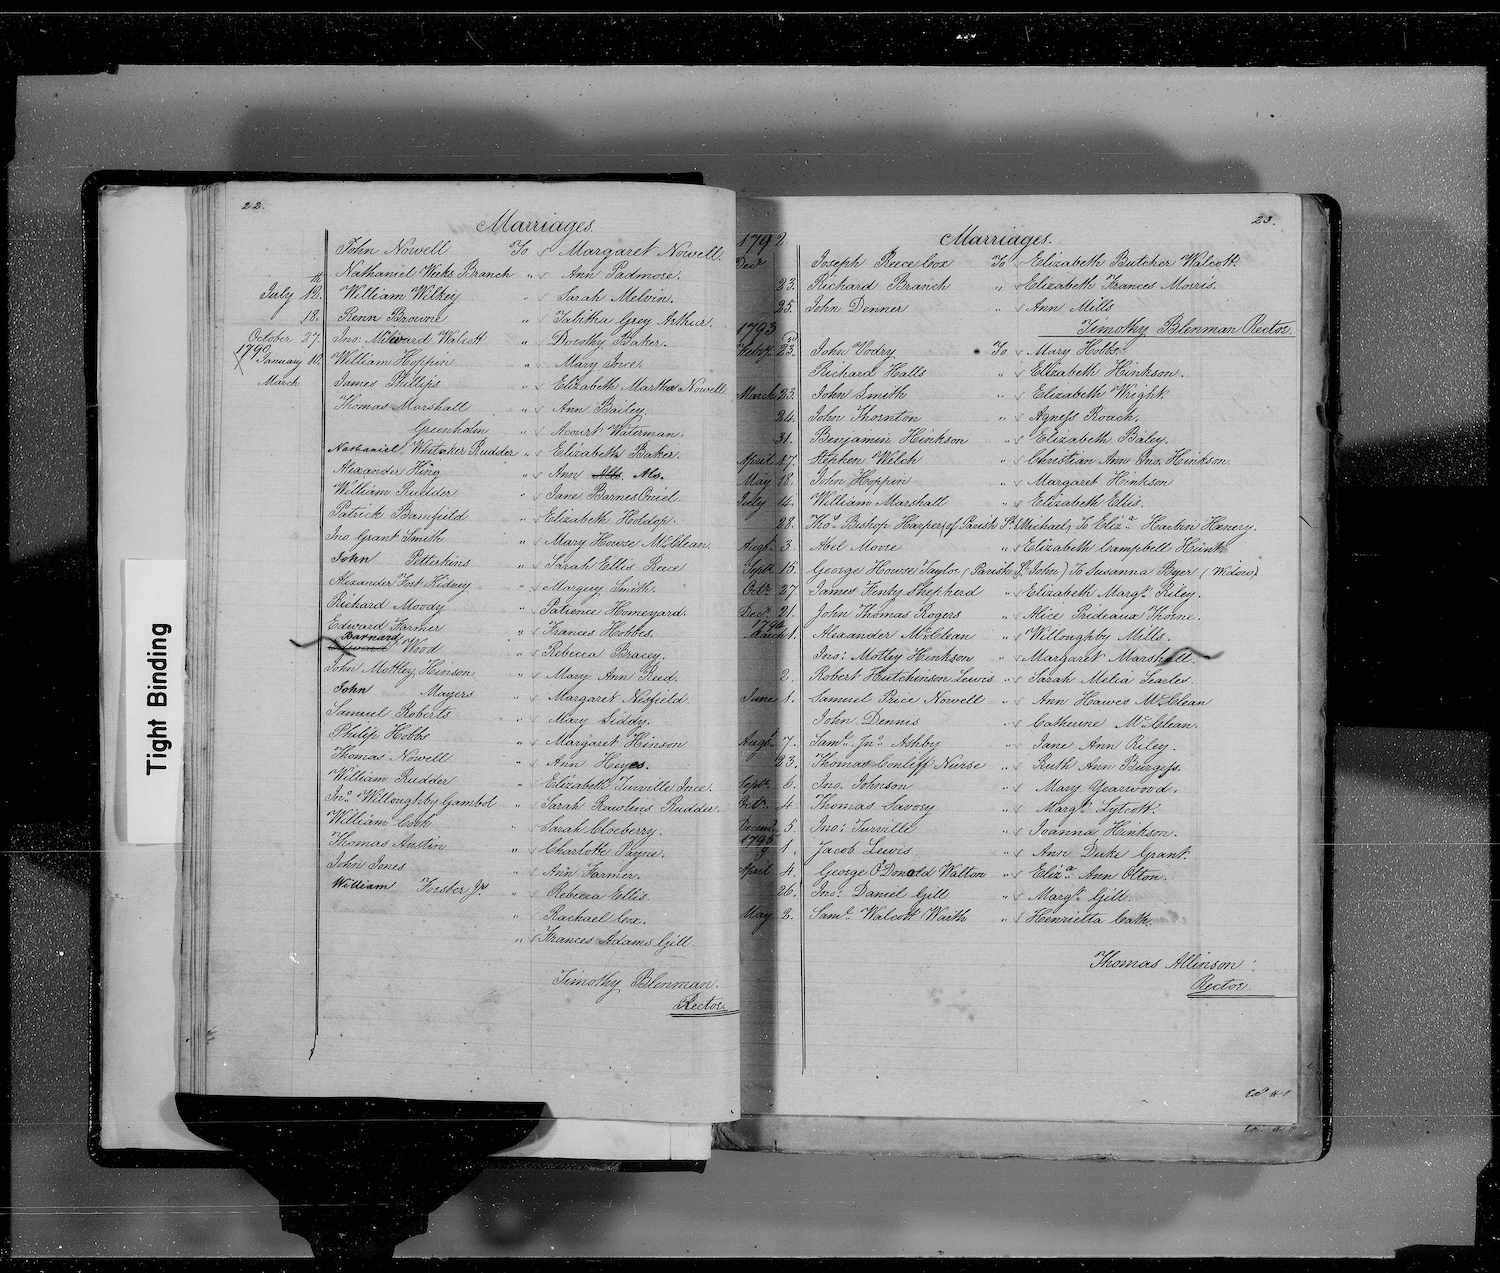 22.
Marriages.
John Nowell To Margaret Nowell.
Nathaniel Weeks Branch " Ann Padmore.
July 12.th William Wilkey " Sarah Melvin.
18. Renn Browne " Tabitha Grey Arthur.
October 27. Jno. Milward Walcott " Dorothy Baker.
1790
January 10. William Hoppin " Mary Ince.
March James Phillips " Elizabeth Martha Nowell
Thomas Marshall " Ann Bailey.
Greenholm " Acourt Waterman.
Nathaniel Whitaker Rudder " Elizabeth Baker.
Alexander King " Ann
William Rudder " Jane Barnes Oniel.
Patrick Bamfield " Elizabeth Holdop.
Jno. Grant Smith " Mary Howse McClean.
John Petterkins " Sarah Ellis Reece
Alexander Fort Kidney " Margery Smith.
Richard Moody " Patience Homeyard.
Edward Farmer " Frances Hobbes.
Barnard
Edward Wood " Rebecca Bracey.
John Mottley Hinson " Mary Ann Reed.
John Mayers " Margaret Nesfield.
Samuel Roberts " Mary Liddy.
Philip Hobbs " Margaret Hinson
Thomas Nowell " Ann Heyes.
William Rudder " Elizabeth Turville Ince.
Jno. Willoughby Gambol " Sarah Rawlins Rudder.
William Cook " Sarah Cloeberry.
Thomas Austin " Charlotte Payne.
John Jones " Ann Farmer.
William Forster Jr " Rebecca Ellis.
" Rachael Cox.
" Frances Adams Gill
Timothy Blenman.
Rector
Tight Binding
23.
Marriages.
1792
Decr. Joseph Reece Cox To Elizabeth Butcher Walcott.
23. Richard Branch " Elizabeth Frances Morris.
25. John Denner " Ann Mills
Timothy Blenman Rector.
1793
Feby. 23.rd John Vodry To Mary Hobbs.
Richard Halls " Elizabeth Hinkson.
March 23. John Smith " Elizabeth Wright.
24. John Thornton " Agness Roach.
31. Benjamin Hinkson " Elizabeth Baley.
April 17. Stephen Welch " Christian Ann Jno. Hinkson.
May 18. John Hoppin " Margaret Hinkson
July 14. William Marshall " Elizabeth Ellis.
28. Thos. Bishop Harper (of Parish St. Michael) To Eliza. Harbin Hænery.
Augt. 3. Abel Moore " Elizabeth Campbell Hunte
Sept. 15. George Howse Taylor (Parish St. John) To Susanna Byer (Widow)
Octr. 27. James Henry Shepherd " Elizabeth Margt. Riley.
Decr. 21. John Thomas Rogers " Alice Prideaux Thorne.
1794
March 1. Alexander McClean " Willoughby Mills.
Jno: Motley Hinkson " Margaret Marshall.
2. Robert Hutchinson Lewis " Sarah Melia Searles.
June 1. Samuel Price Nowell " Ann Hawes McClean
John Dennis " Catherine McClean.
Augt. 7. Saml. Jno. Ashby " Jane Ann Riley.
23. Thomas Conliff Nurse " Ruth Ann Burgess.
Sept. 6. Jno. Johnson " Mary Yearwood.
4. Thomas Savory " Margt. Lytcott.
Decem. 5. Jno: Turville " Joanna Hinkson.
1795
1. Jacob Lewis " Ann Duke Grant.
April 4. George O'Donold Walton " Eliza. Ann Olton.
26. Jno: Daniel Gill " Margt. Gill
May 2. Saml. Walcott Waith " Henrietta Cath.
Thomas Allinson:
Rector